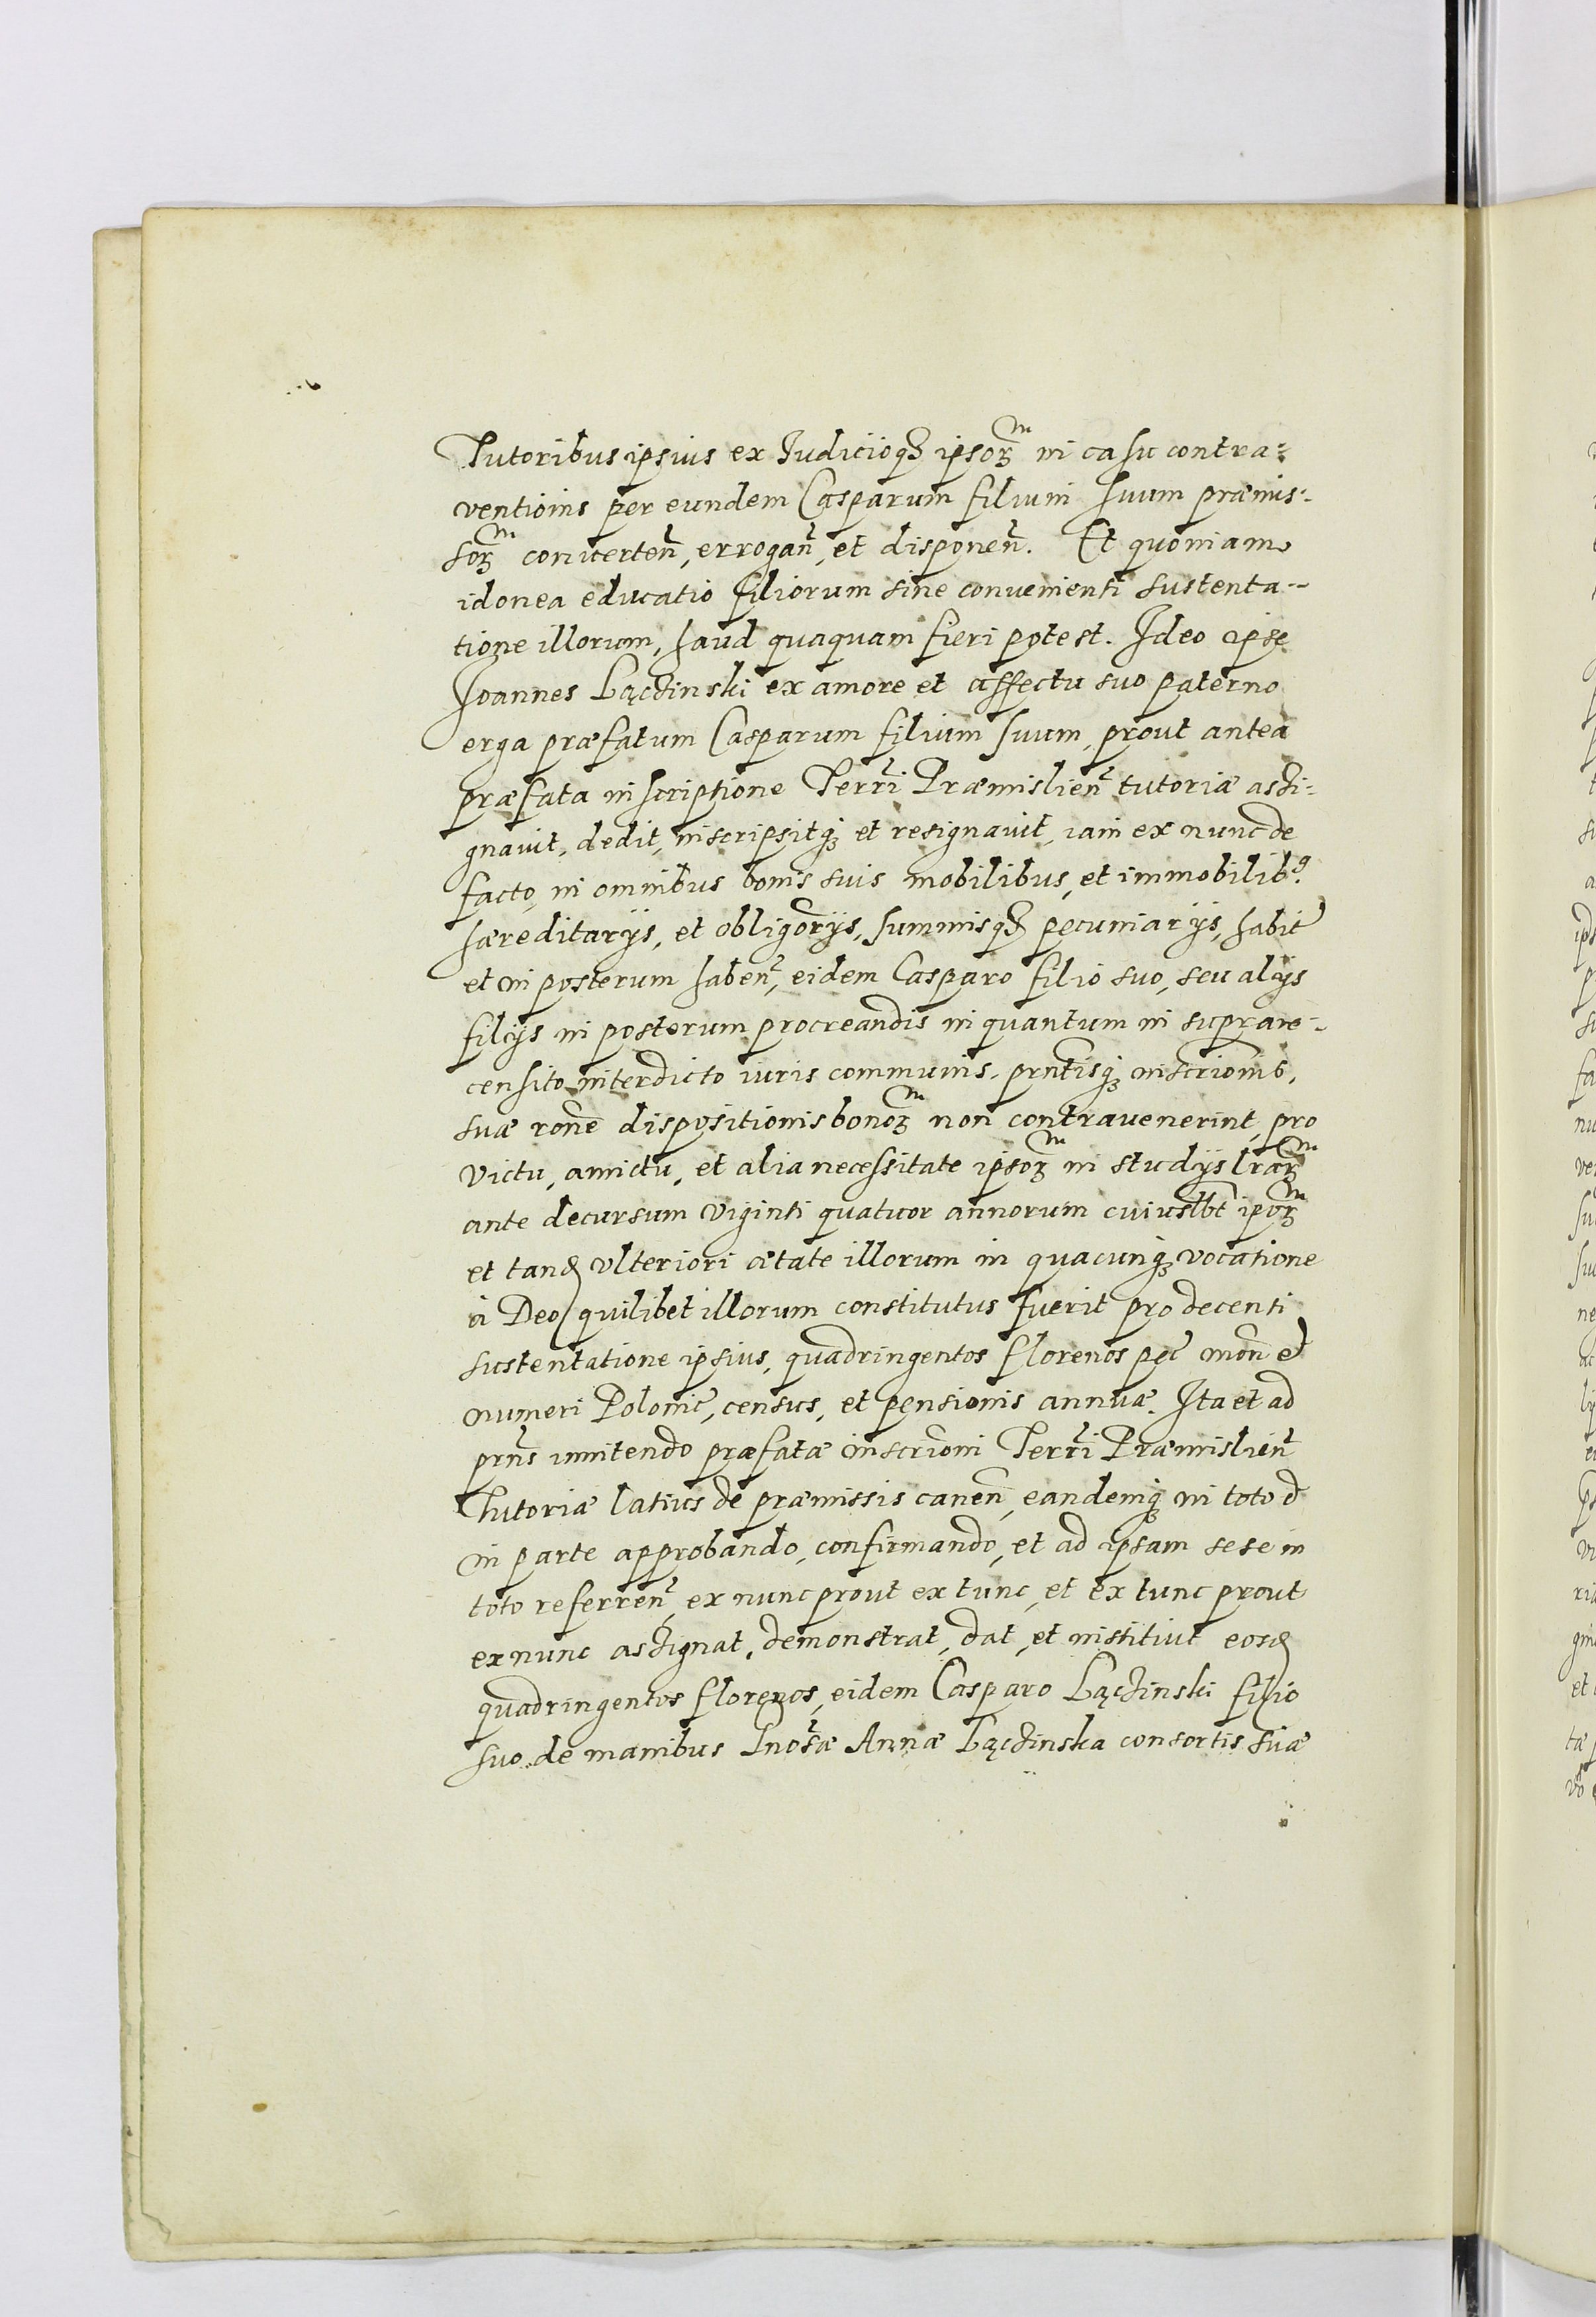 Tutoribus ipsius ex Iudicioqȝ ipsoꝝm in casu contra-
ventionis per eundem Casparum filium suum præmis-
soꝝm converten̄, errogan̄, et disponen̄. Et quoniam
idonea educatio filiorum sine convenienti sustenta-
tione illorum, haud quaquam fieri potest. Ideo ipse
Joannes Łącżinski ex amore et affectu suo paterno
erga præfatum Casparum filium suum, prout antea
præfata inscriptione Terrī Præmislien̄ tutoriæ assi-
gnavit, dedit, inscripsitqȝ et resignavit, iam ex nunc de
facto, in omnibus bonis suis mobilibus, et immobilibꝰ
hæreditarijs, et obligōrijs, summisqȝ pecuniarijs, habit̄
et in posterum haben̄, eidem Casparo filio suo, seu alijs
filijs in posterum procreandis in quantum in suprare-
censito interdicto iuris communis, prn̄tisqȝ inscrip̄onis,
suæ rōne dispositionis bonoꝝm non contravenerint, pro
victu, amictu, et alia necessitate ipsoꝝm in studijs lr̄aꝝm
ante decursum viginti quatuor annorum cuiuslb̄t ipsoꝝm
et tandē ulteriori ætate illorum in quacunqȝ vocatione
à Deo quilibet illorum constitutus fuerit pro decenti
sustentatione ipsius, quadringentos florenos pec̄ mon̄ et
numeri Polonic̄, census, et pensionis annuæ. Ita et ad
prn̄s innitendo præfatæ inscrip̄oni Terrī Præmislien̄
Tutoriæ latius de præmissis canen̄, eandemqȝ in toto et
in parte approbando, confirmando, et ad ipsam sese in
toto referren̄, ex nunc prout ex tunc, et ex tunc prout
ex nunc assignat, demonstrat, dat, et instituit eosdē
quadringentos florenos, eidem Casparo Łącżinski filio
suo de manibus Gnōsæ Annæ Łącżinska consortis suæ